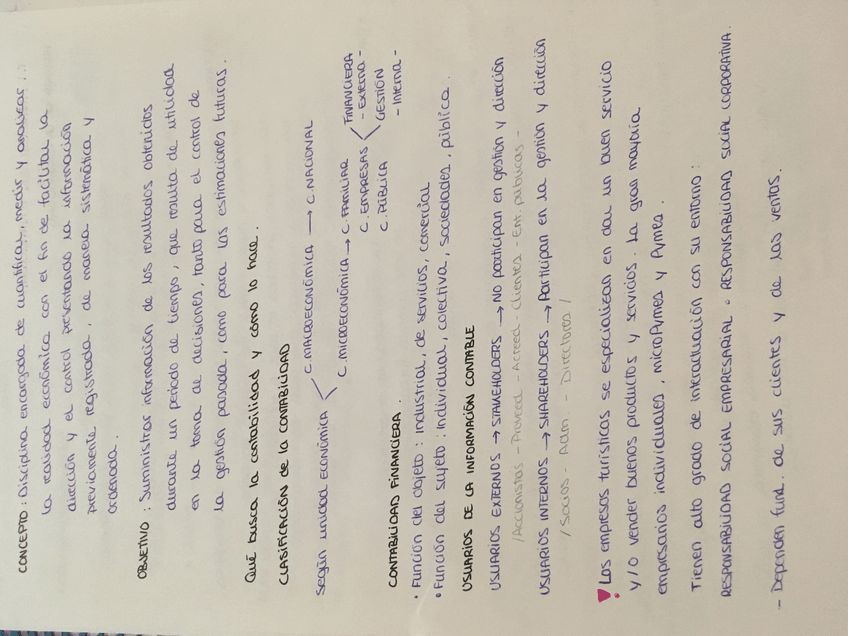 CONCEPTO : Disciplina encargada de cuantificar, medir y analizar
la realidad económica con el fin de facilitar la
dirección y el control presentando la información
previamente registrada, de manera sistemática y
ordenada.
OBJETIVO : Suministrar información de los resultados obtenidos
durante un periodo de tiempo, que resulta de utilidad
en la toma de decisiones, tanto para el control de
la gestión pasada, como para las estimaciones futuras.
Qué busca la contabilidad y cómo lo hace.
CLASIFICACIÓN DE LA CONTABILIDAD
Según unidad ECONÓMICA
C. MACROECONÓMICA → C. NACIONAL
C. MICROECONÓMICA → C. FAMILIAR
C. EMPRESAS
FINANCIERA
- Externa -
GESTIÓN
- Interna -
C. PÚBLICA
CONTABILIDAD FINANCIERA.
• Función del objeto : industrial, de servicios, comercial
• Función del sujeto : Individual, colectiva, sociedades, pública.
USUARIOS DE LA INFORMACIÓN CONTABLE
USUARIOS EXTERNOS → STAKEHOLDERS → NO participan en gestión y dirección
/Accionistas - Proveed - Acreed - Clientes - Ent. públicas -
USUARIOS INTERNOS → SHAREHOLDERS → Participan en la gestión y dirección
/ Socios - Adm - Directores /
Las empresas turísticas se especializan en dar un buen servicio
y/o vender buenos productos y servicios. La gran mayoría
empresarios individuales, microPymes y Pymes.
Tienen alto grado de interactuación con su entorno :
RESPONSABILIDAD SOCIAL EMPRESARIAL o RESPONSABILIDAD SOCIAL CORPORATIVA.
- Dependen fund. de sus clientes y de las ventas.